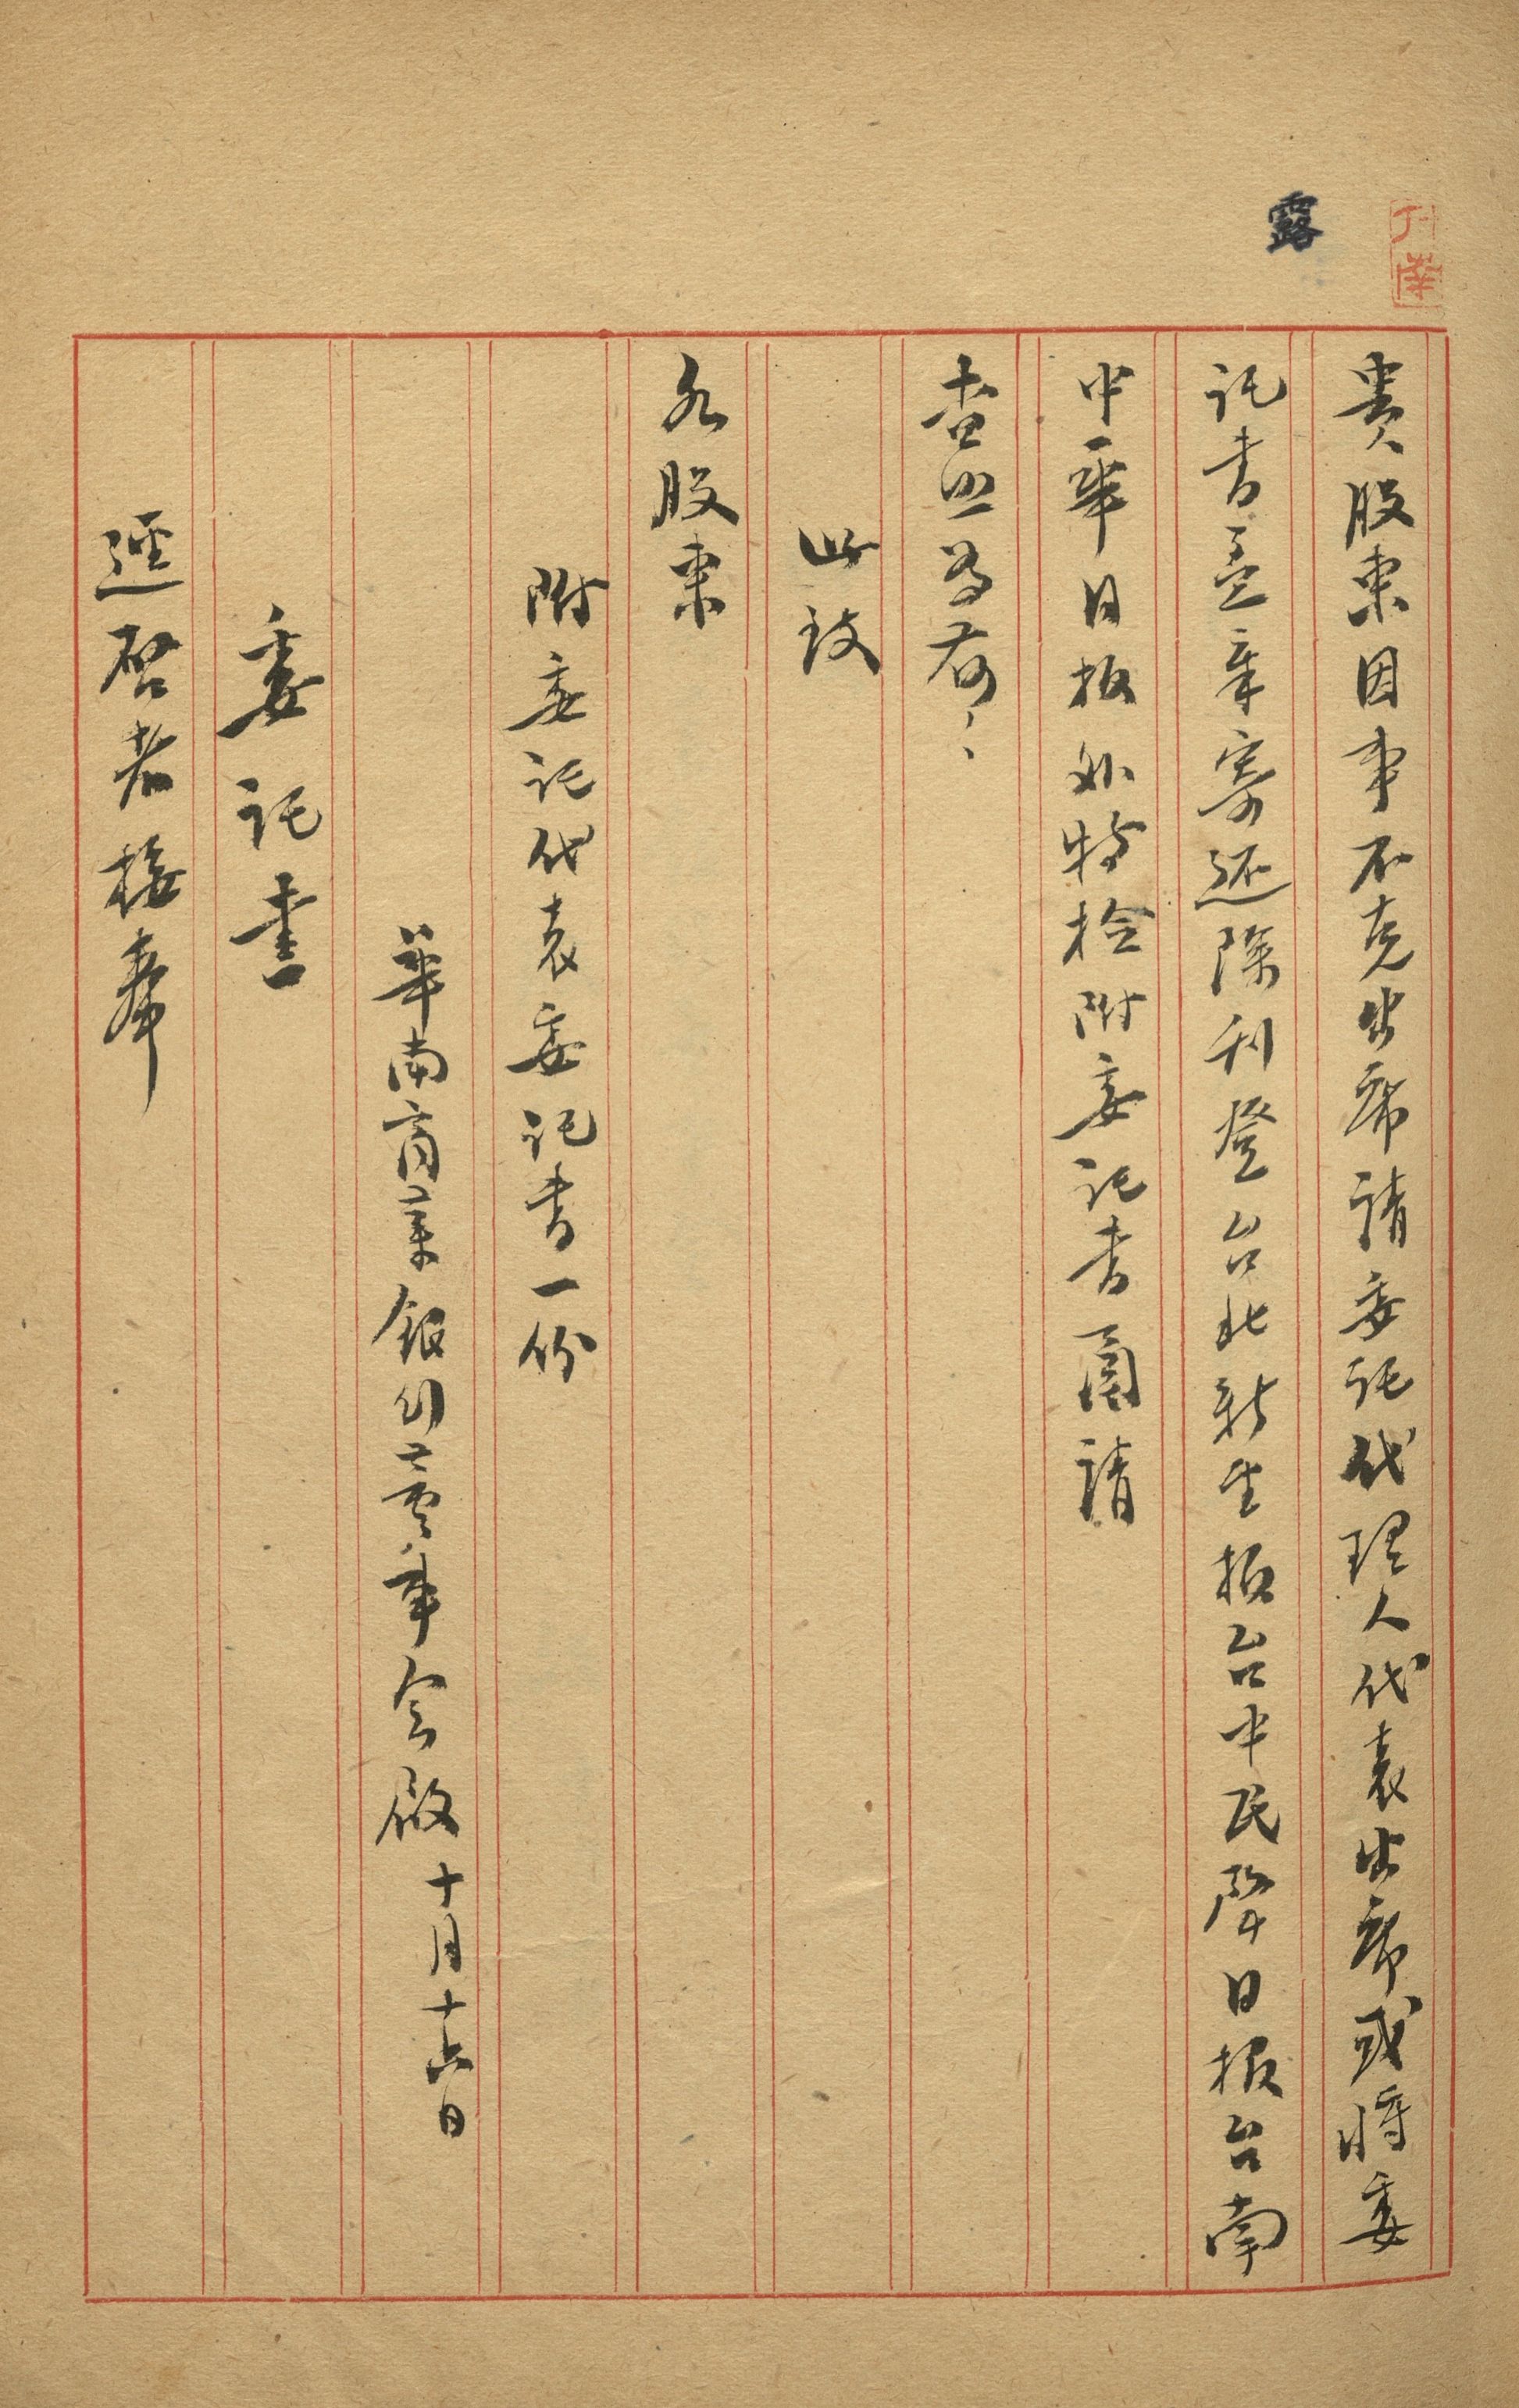 露
貴股東因事不克出席請委託代理人代表出席或將委
託書蓋章寄還除刊登台北新生報台中民聲日報台南
中華日報外特檢附委託書函請
查照為荷
此致
各股東
附委託代表委託書一份
華南商業銀行董事會啟十月十六日
委託書
逕啓者接奉